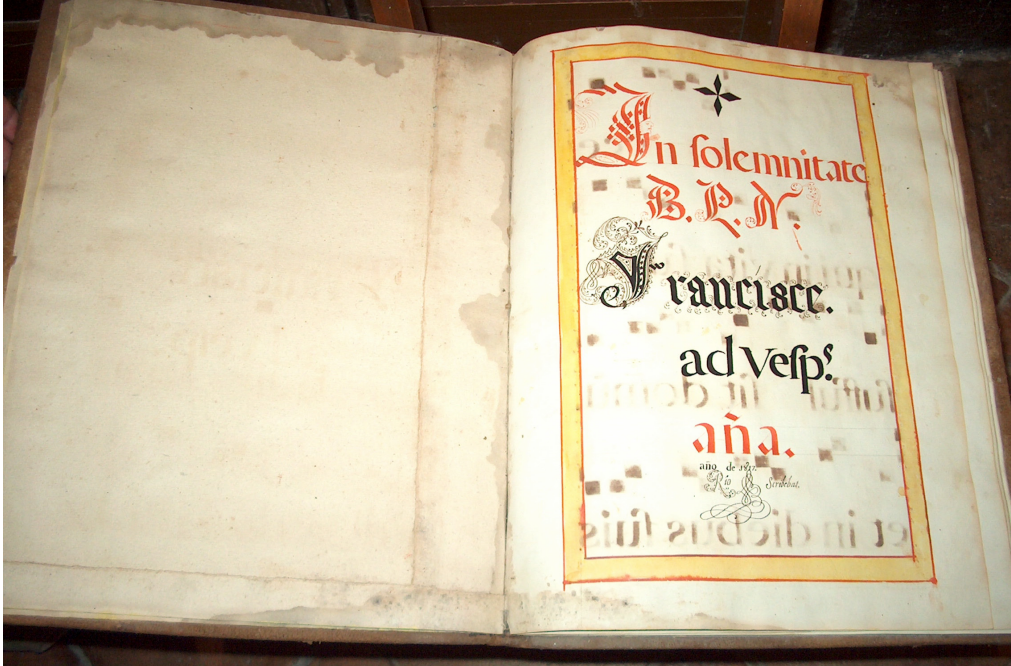 In solemnitate
B. P. N.
Francisce.
ad Vesp.s
aña.
año de 1817.
Rio Scribebat.